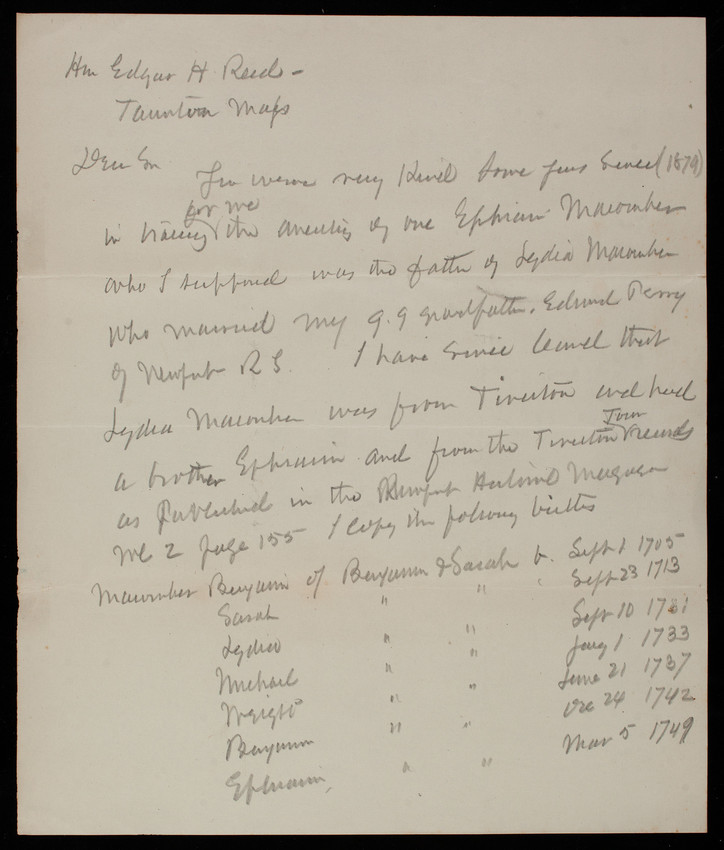 Hon Edgar H. Reed -
Taunton Mass
Dear Sir
You were very Kind some years since (1879)
for me
in tracing the ancestry of one Ephraim Macomber
who I supposed was the father of Lydia Macomber
who married my g. g grandfather, Edward Perry
of Newport R I. I have since learned that
Lydia Macomber was from Tiverton and had
a brother Ephraim and from the Tiverton Town records
as Published in the Newport Historical Magazine
vol 2 page 155 I copy the following births
Macomber Benjamin of Benjamin & Sarah b. Sept 1 1705
Sarah " " Sept 23 1713
Lydia " " Sept 10 1731
Michael " " Jany 1 1733
Wright " " June 21 1737
Benjamin " " Dec 24 1742
Ephraim, " " Mar 5 1749